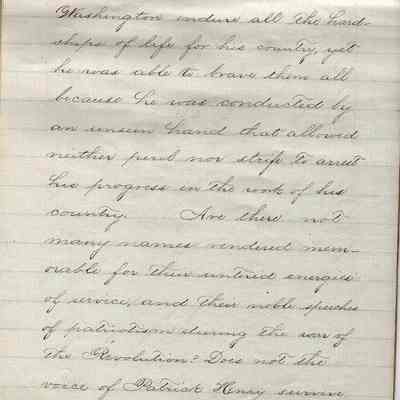 Washington endure all the hard-
ships of life for his country, yet
he was able to brave them all
because he was conducted by
an unseen hand that allowed
neither peril nor strife to arrest
his progress in the work of his
country. Are there not
many names rendered mem-
orable for their untired energies
of service, and their noble speeches
of patriotism during the war of
the Revolution? Does not the
voice of Patrick Henry survive